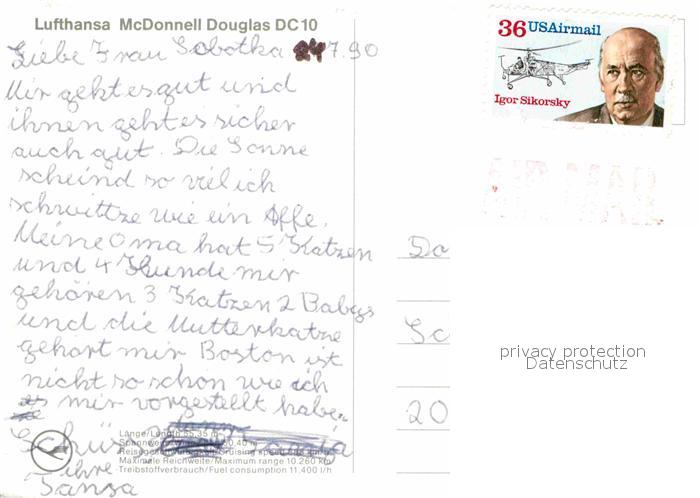 Lufthansa McDonnell Douglas DC10
Liebe Frau Sobotka 24 7.90
Mir geht es gut und
ihnen geht es sicher
auch gut. Die Sonne
scheind so viel ich
schwittze wie ein Affe.
Meine Oma hat 5 Katzen
und 4 Hunde mir
gehören 3 Katzen 2 Babys
und die Mutterkatze
gehört mir Boston ist
nicht so schön wie ich
es mir vorgestellt habe.
Schüs
ihre
Tansa
Länge/Length 55,35 m
Spannweite/ 50,40 m
Reisegeschwindigkeit/Cruising speed
Maximale Reichweite/Maximum range 10.260 km
Treibstoffverbrauch/Fuel consumption 11.400 l/h
36 USAirmail
Igor Sikorsky
AIR MAIL
Da
Sc
20
privacy protection
Datenschutz